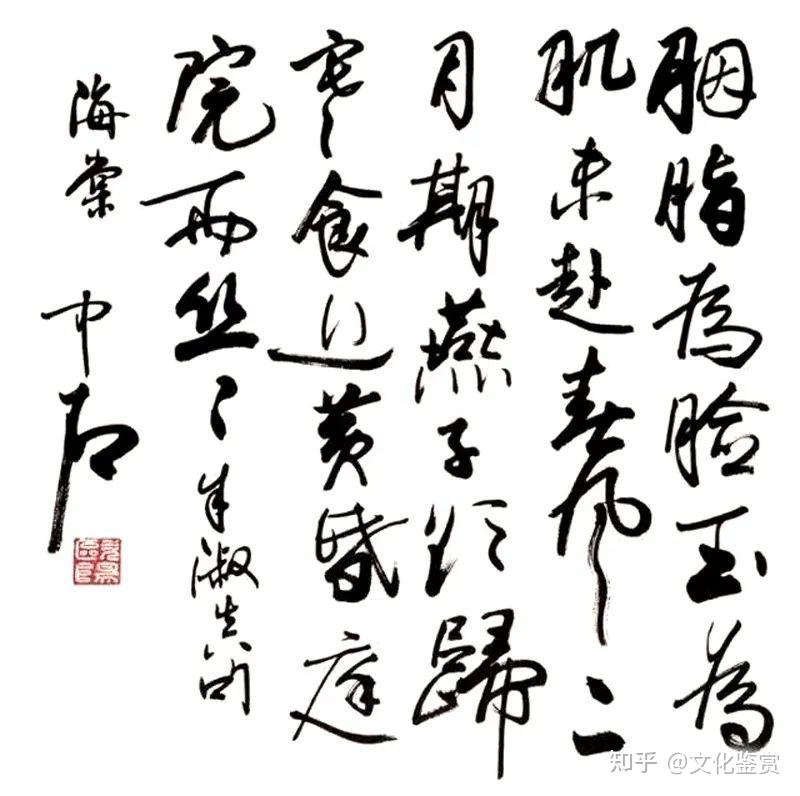 胭脂為脸玉為
肌未赴春風二
月期燕子欲歸
寒食近黄昏庭
院雨丝〻朱淑真
海棠 中石
知乎 @文化鉴赏